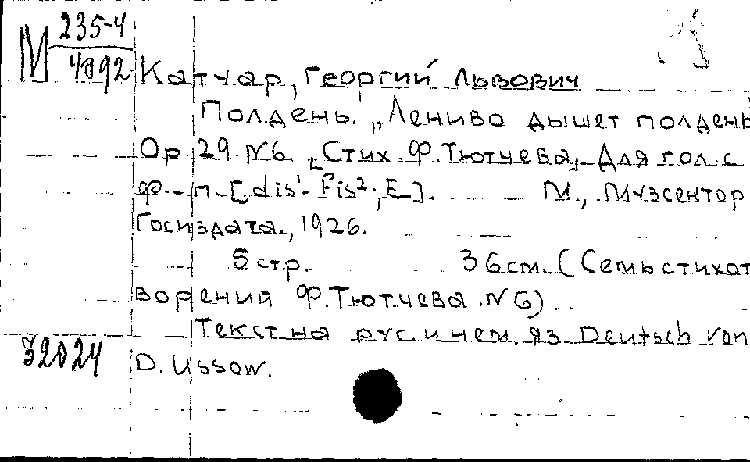 М 235-4
4092
Катуар, Георгий Львович
Полдень. "Лениво дышет полдень
Ор 29 №6. [Стих. Ф. Тютчева]. Для гол. с
ф.-п. [dis¹- Fis²; E]. М., Музсектор
Госиздата, 1926.
5 стр. 36 см. (Семь стихот
ворений Ф. Тютчева. №6)
Текст на рус. и нем. яз Deutsch von
32024
D. Ussow.